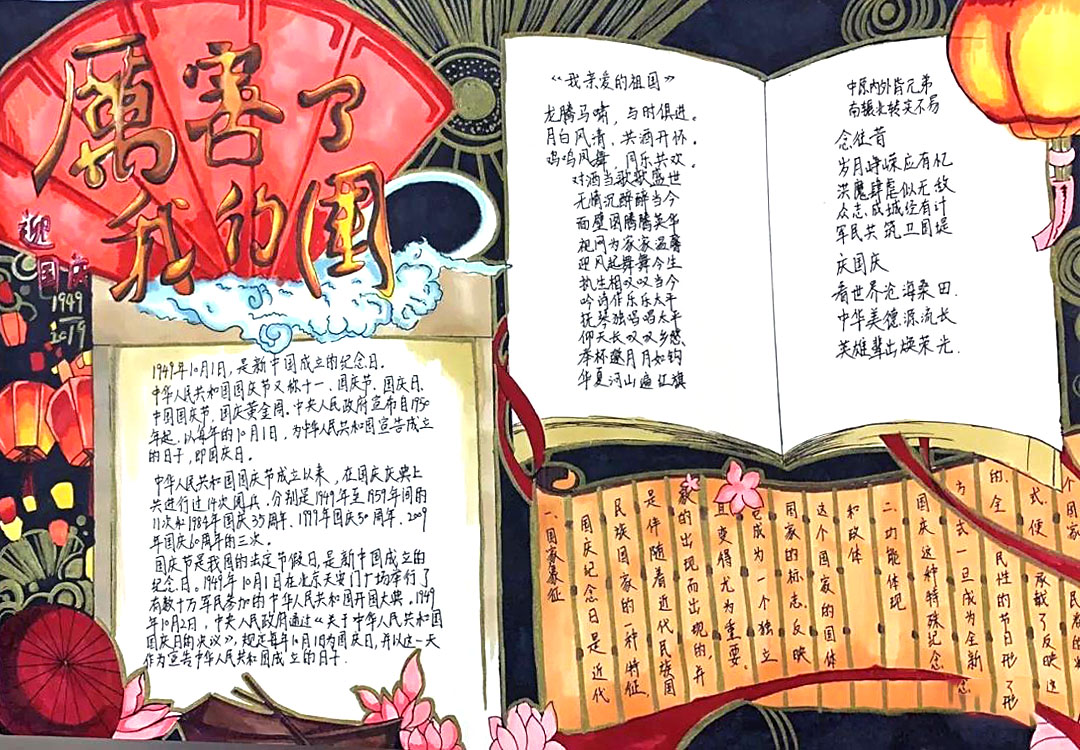 厲害了
我的國
迎
国庆
1949
2019
1949年10月1日,是新中国成立的纪念日。
中华人民共和国国庆节又称十一、国庆节、国庆日、
中国国庆节、国庆黄金周。中央人民政府宣布自1950
年起,以每年的10月1日,为中华人民共和国宣告成立
的日子,即国庆日。
中华人民共和国国庆节成立以来,在国庆庆典上
共进行过14次阅兵,分别是1949年至1959年间的
11次和1984年国庆35周年、1999年国庆50周年、2009
年国庆60周年的三次。
国庆节是我国的法定节假日,是新中国成立的
纪念日。1949年10月1日在北京天安门广场举行了
有数十万军民参加的中华人民共和国开国大典。1949
年10月2日,中央人民政府通过《关于中华人民共和国
国庆日的决议》,规定每年10月1日为国庆日,并以这一天
作为宣告中华人民共和国成立的日子.
《我亲爱的祖国》
龙腾马啸,与时俱进。
月白风清,共酒开怀。
鸡鸣凤舞,同乐共欢。
对酒当歌歌盛世
无情沉醉醉当今
面壁图腾腾英华
视网为家家温馨
迎风起舞舞今生
执生相叹叹当今
吟诗作乐乐太平
抚琴独唱唱太平
仰天长叹叹乡愁
举杯邀月月如钩
华夏河山遍红旗
中原内外皆兄弟
南辗北转实不易
念往昔
岁月峥嵘应有忆
洪魔肆虐似无敌
众志成城终有计
军民共筑卫国堤
庆国庆
看世界沧海桑田.
中华美德源流长
英雄辈出焕荣光.
一、国家象征
国庆纪念日是近代
民族国家的一种特征,
是伴随着近代民族国
家的出现而出现的,并
且变得尤为重要。
它成为一个独立
国家的标志,反映
这个国家的国体
和政体
二、功能体现
国庆这种特殊纪念
方式一旦成为全新
的、全民性的节日形
式,便承载了反映这